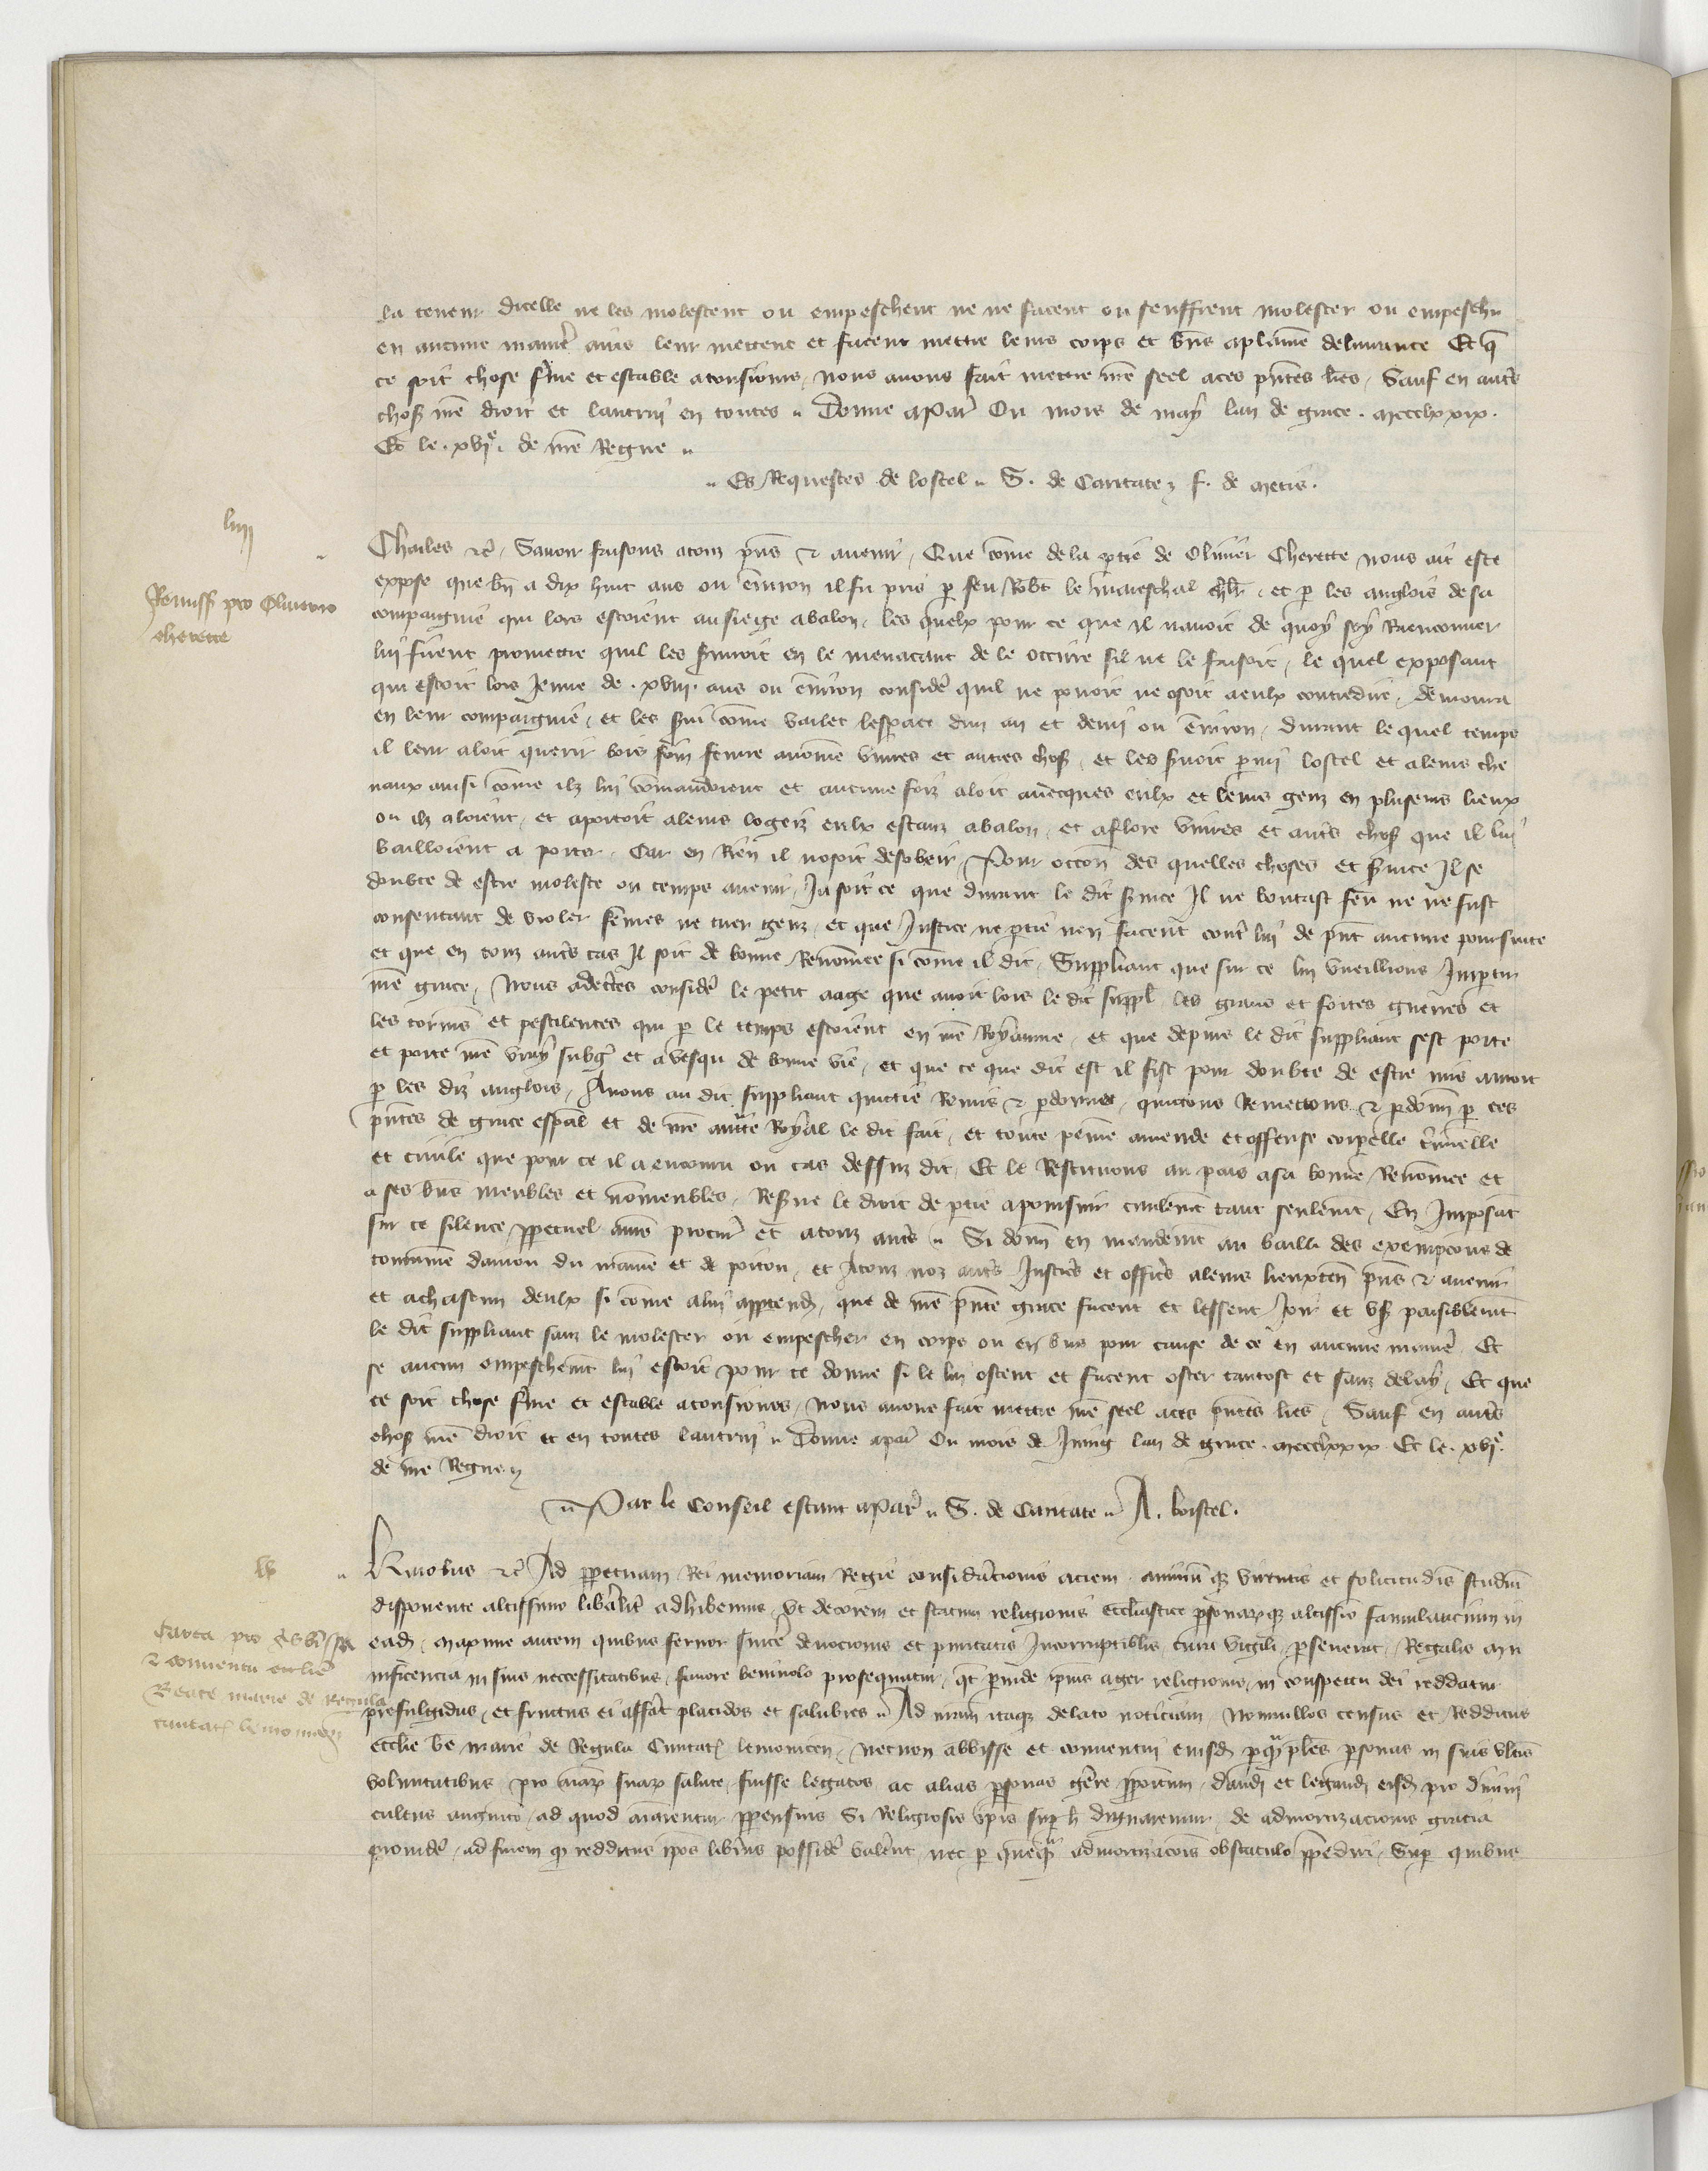 la teneur dicelle ne les molestent ou empeschent ne ne facent ou seuffrent molester ou empeschr
en aucune manie aincs leur mettent et facent mettre leurs corps et bns aplaine deliurance Et q̄
ce soit chose ferme et estable atousiours, nous auons fait mettre nr̄e seel aces pn̄tes lr̄es, Sauf en autrs
choses nr̄e droit et lautrui en toutes Donne aParis Ou mois de may lan de grace. mccclxxix.
Et le. xvie. de nr̄e Regne
Es Requestes de lostel S. de Caritate f. de metis.
liiii
Remiss pro Oliuerio
cherette
Charles etc̄, Sauoir faisons atouz pn̄s et auenir, Que cōme de la ptie de Oliuier Cherette nous ait este
expose que bn̄ a dix huit ans ou enuiron il fu pris p feu Robt le mareschal chlr, et p les anglois de sa
compaignie qui lors estoient ausiege abalon, les quelx pour ce que il nauoit de quoy soy Raenconner
lui firent promettre quil les seruiroit en le menacant de le occirre sil ne le faisoit, le quel exposant
qui estoit lors Jeune de. xviii. ans ou enuiron consider quil ne pouoit ne osoit aeulx contredire, demoura
en leur compaignie, et les serui cōme varlet lespace dun an et demi ou enuiron, durant le quel temps
il leur aloit querir bois foin feurre auoine viures et autres choses, et les seruoit parmi lostel et aleurs che
uaux ainsi cōme ilz lui cōmandoient et aucune foiz aloit auecques eulx et leurs genz en plusieurs lieux
ou ilz aloient, et aportoit aleurs logeiz eulx estanz abalon, et aflore viures et autrs choses que il lui
bailloient a porter, Car en Rien il nosoit desobeir, Pour occon̄ des quelles choses et seruice Il se
doubte de estre moleste ou temps auenir, Ja soit ce que durant le dit seruice Il ne boutast feu ne ne fust
consentant de violer fēmes ne tuer genz, et que Justice ne ptie nen facent contr lui de pn̄t aucune poursuite
et que en touz autrs cas Il soit de bonne Renōmee si cōme il dit, Suppliant que sur ce lui vueillions Impartir
nr̄e grace, Nous adecertes consider le petit aage que auoit lors le dit suppl les grans et fortes guerres et
les tormens et pestilences qui p le temps estoient en nr̄e Royaume, et que depuis le dit suppliant sest porte
et porte nr̄e vray subget et a vesqu de bonne vie, et que ce que dit est il fist pour doubte de estre mis amort
p les diz anglois, Auons au dit suppliant quictie Remis et pdonne, quictons Remettons et pdonn̄ p ces
pn̄tes de grace espal et de nr̄e aucte Royal le dit fait, et toute peine amende et offense corporelle criminelle
et ciuile que pour ce il a encouru ou cas dessus dit, Et le Restituons au pais asa bonne Renōmee et
a ses biens meubles et nōmeubles, Reserue le droit de ptie apoursuir ciuilement tant seulement, En Imposant
sur ce silence ppetuel anr̄e procur et atouz autrs Si donn̄ en mandemt au bailli des exempcions de
touraine danion du maine et de poitou, et Atouz noz autrs Justic et offic aleurs lieuxten̄ pn̄s et auenir
et achascun deulx si cōme alui apptendra, que de nr̄e pn̄te grace facent et lessent Joir et vser paisiblement
le dit suppliant sanz le molester ou empescher en corps ou en biens pour cause de ce en aucune manier Et
se aucun empeschemt lui estoit pour ce donne si le lui ostent et facent oster tantost et sanz delay, Et que
ce soit chose ferme et estable atousiours, Nous auons fait mettre nr̄e seel aces pn̄tes lr̄es, Sauf en autrs
choses nr̄e droit et en toutes lautrui Donne apar Ou mois de Juing lan de grace. mccclxxix Et le. xvie.
de nr̄e Regne
Par le Conseil estant aParis S. de Caritate A. boistel.
lv
Carta pro Abbissa
et conuentu ecclie
Beate marie de Regula
ciuitat lemouicen
Karolus etc̄ Ad ppetuam Rei memoriam Regie considerationis aciem animum q virtutis et solicitudis studiu
disponente altissimo libalit adhibemus, vt decorem et statum religionis Ecclastice psonarq altissio famulancium in
eadem, maxime autem quibus feruor sincer deuocionis et puritatis Incorruptiblis cura vigili pseuerat, Regalis mu
nificencia in suis neccessitatibus fauore beniuolo prosequatur, qt pinde ipius ager religionis in conspectu dei reddatur
prefulgidus, et fructus ei afferat placidos et salubres Ad nr̄am itaq delato noticiam Nonnullos census et Redditus
Ecclie be marie de Regula Ciuitat lemouicen, necnon abbisse et conuentui eiusd pqmples psonas in suis vltis
voluntatibus pro aiarz suarz salute fuisse legatos ac alias psonas gerere ppositum dandi et legandi eisd pro diuini
cultus augmeto, ad quod aiarentur ppensius Si Religiosis ipis sup h dignaremur de admortizacionis gracia
prouider, ad finem q redditus ipos liberius possider valerent, nec p quēq admortizacois obstaculo Impediri, Sup quibus